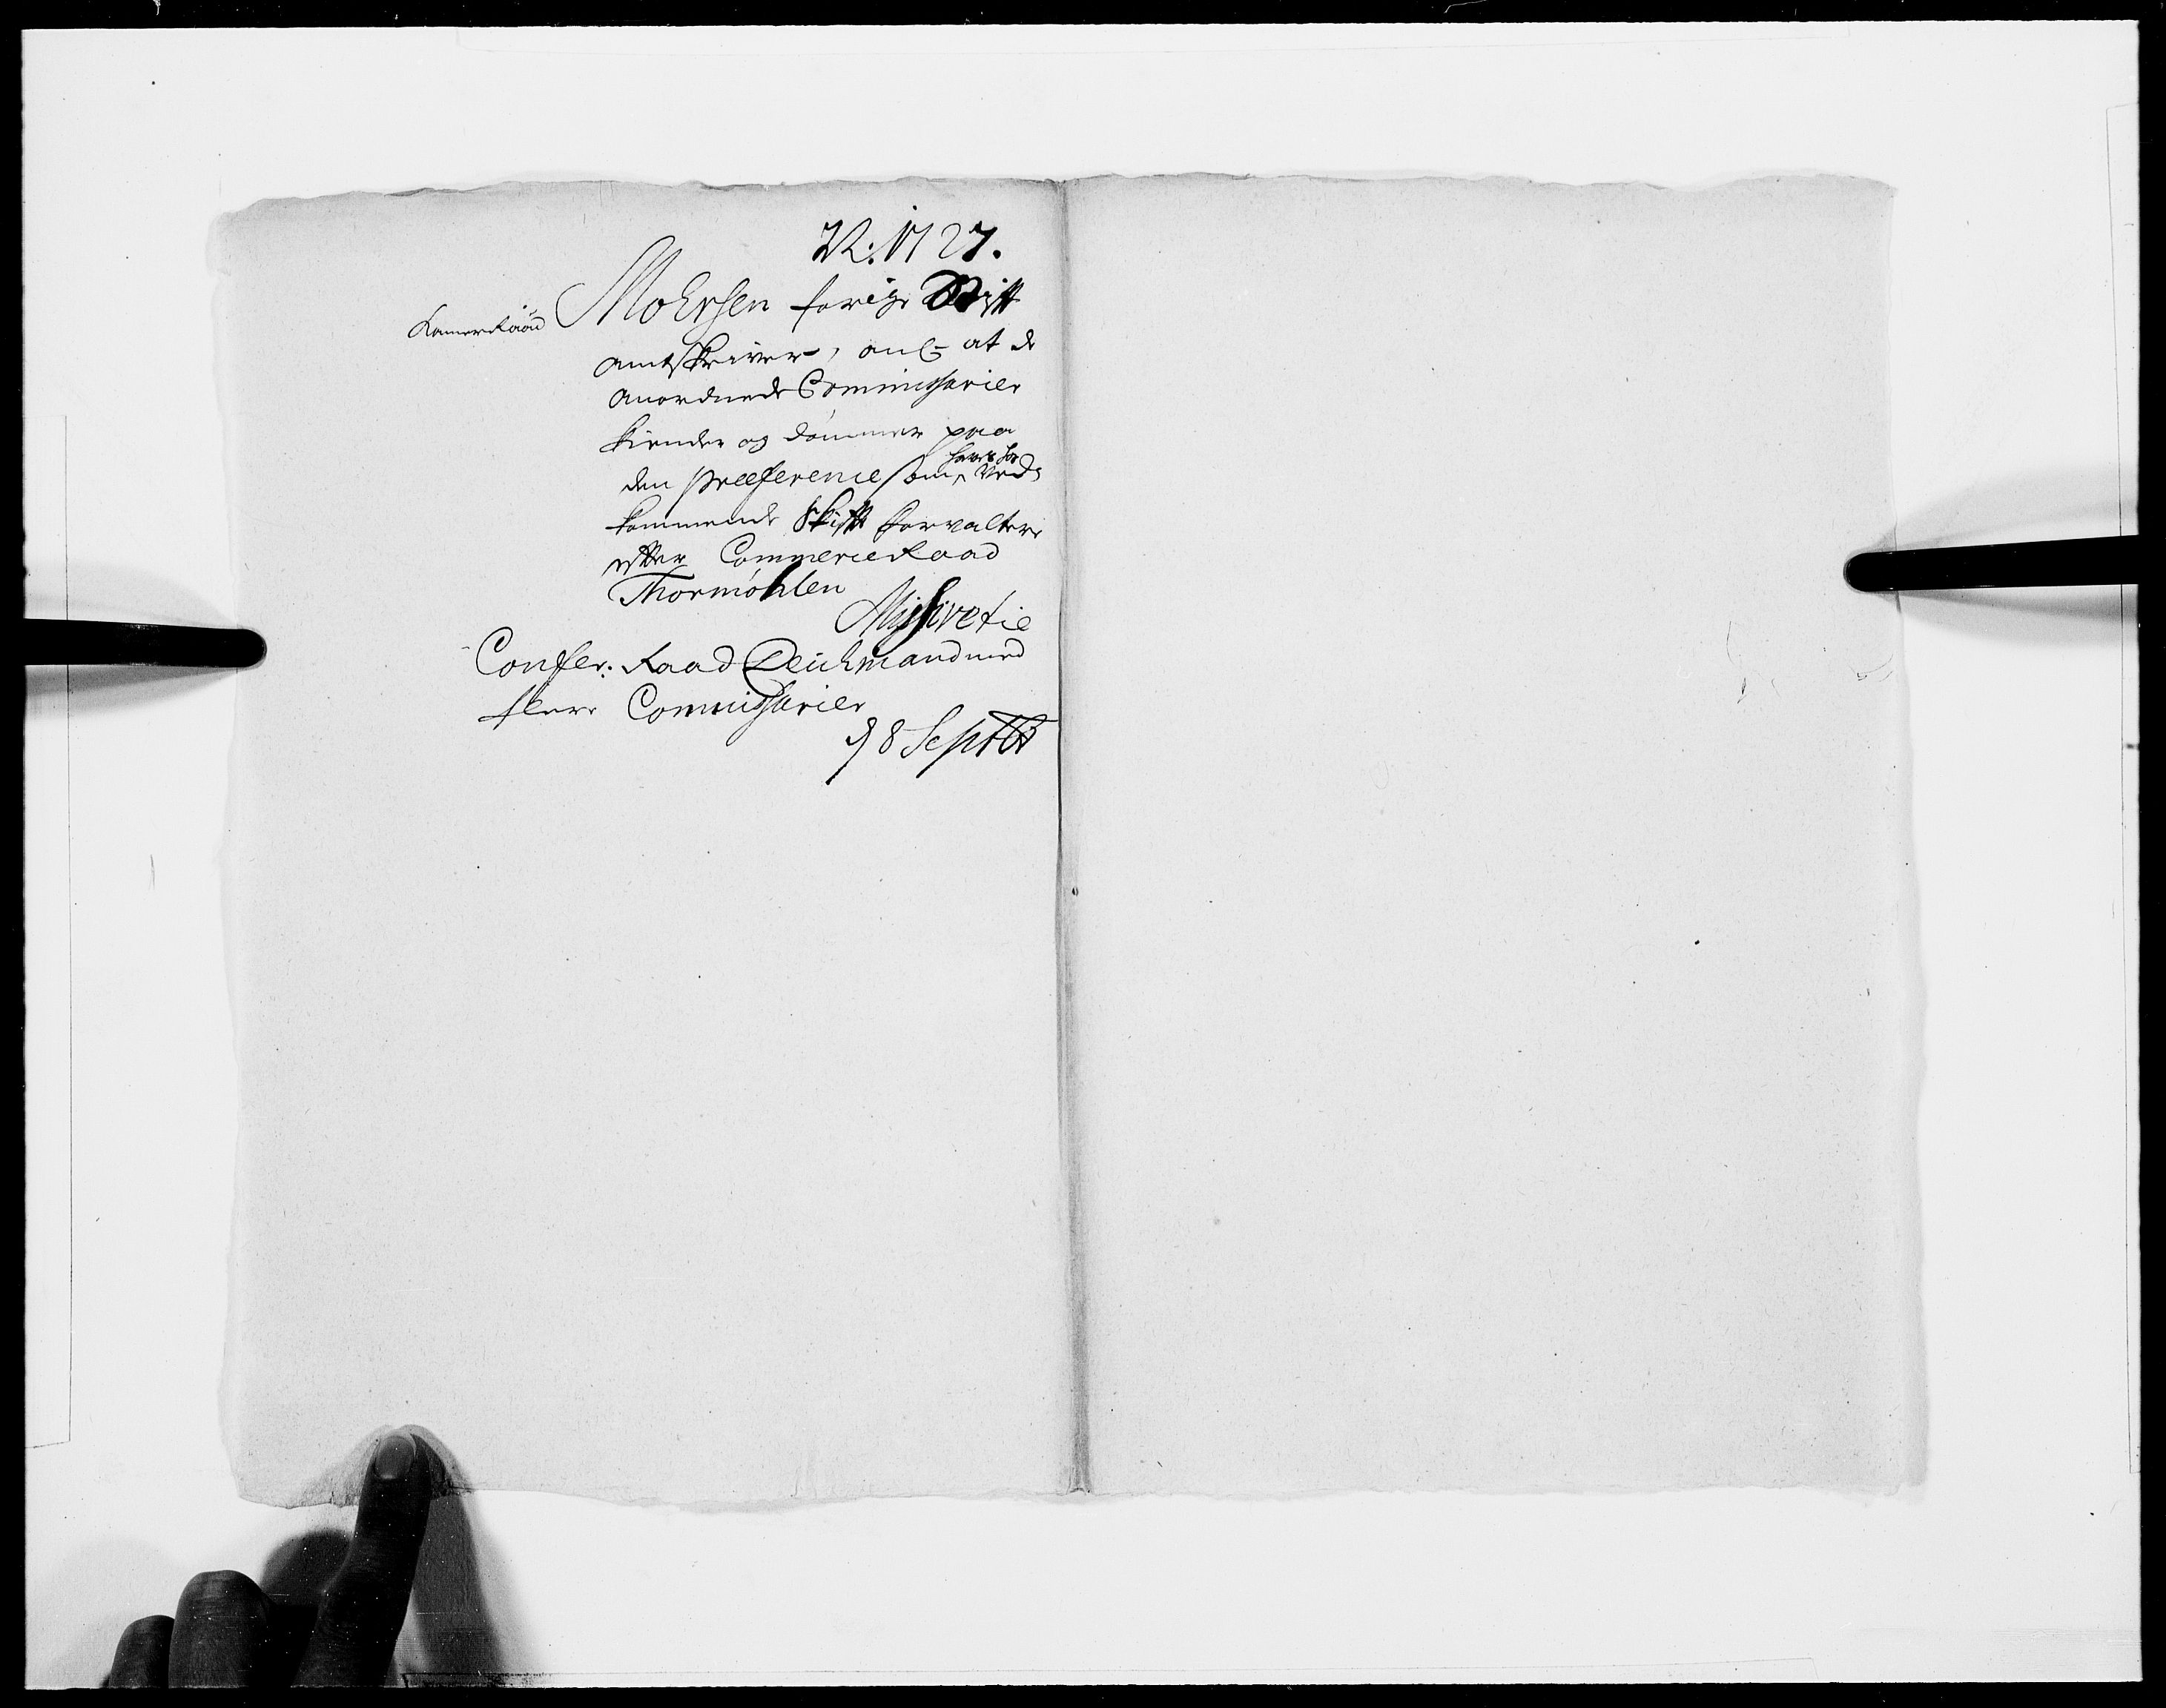 N: 1727.
Kamer Raad Mohrsen forige Stift
amtskriver, anl: at de
anordnede Commissarier
kiender og dömmer paa
den Præference som haver for Ved-
kommende Skifft forvaltere
effter Commerce Raad
Thormöhlen
Missive til
Confer: Raad Deichmand med
flere Commissarier
d 8 Septbr